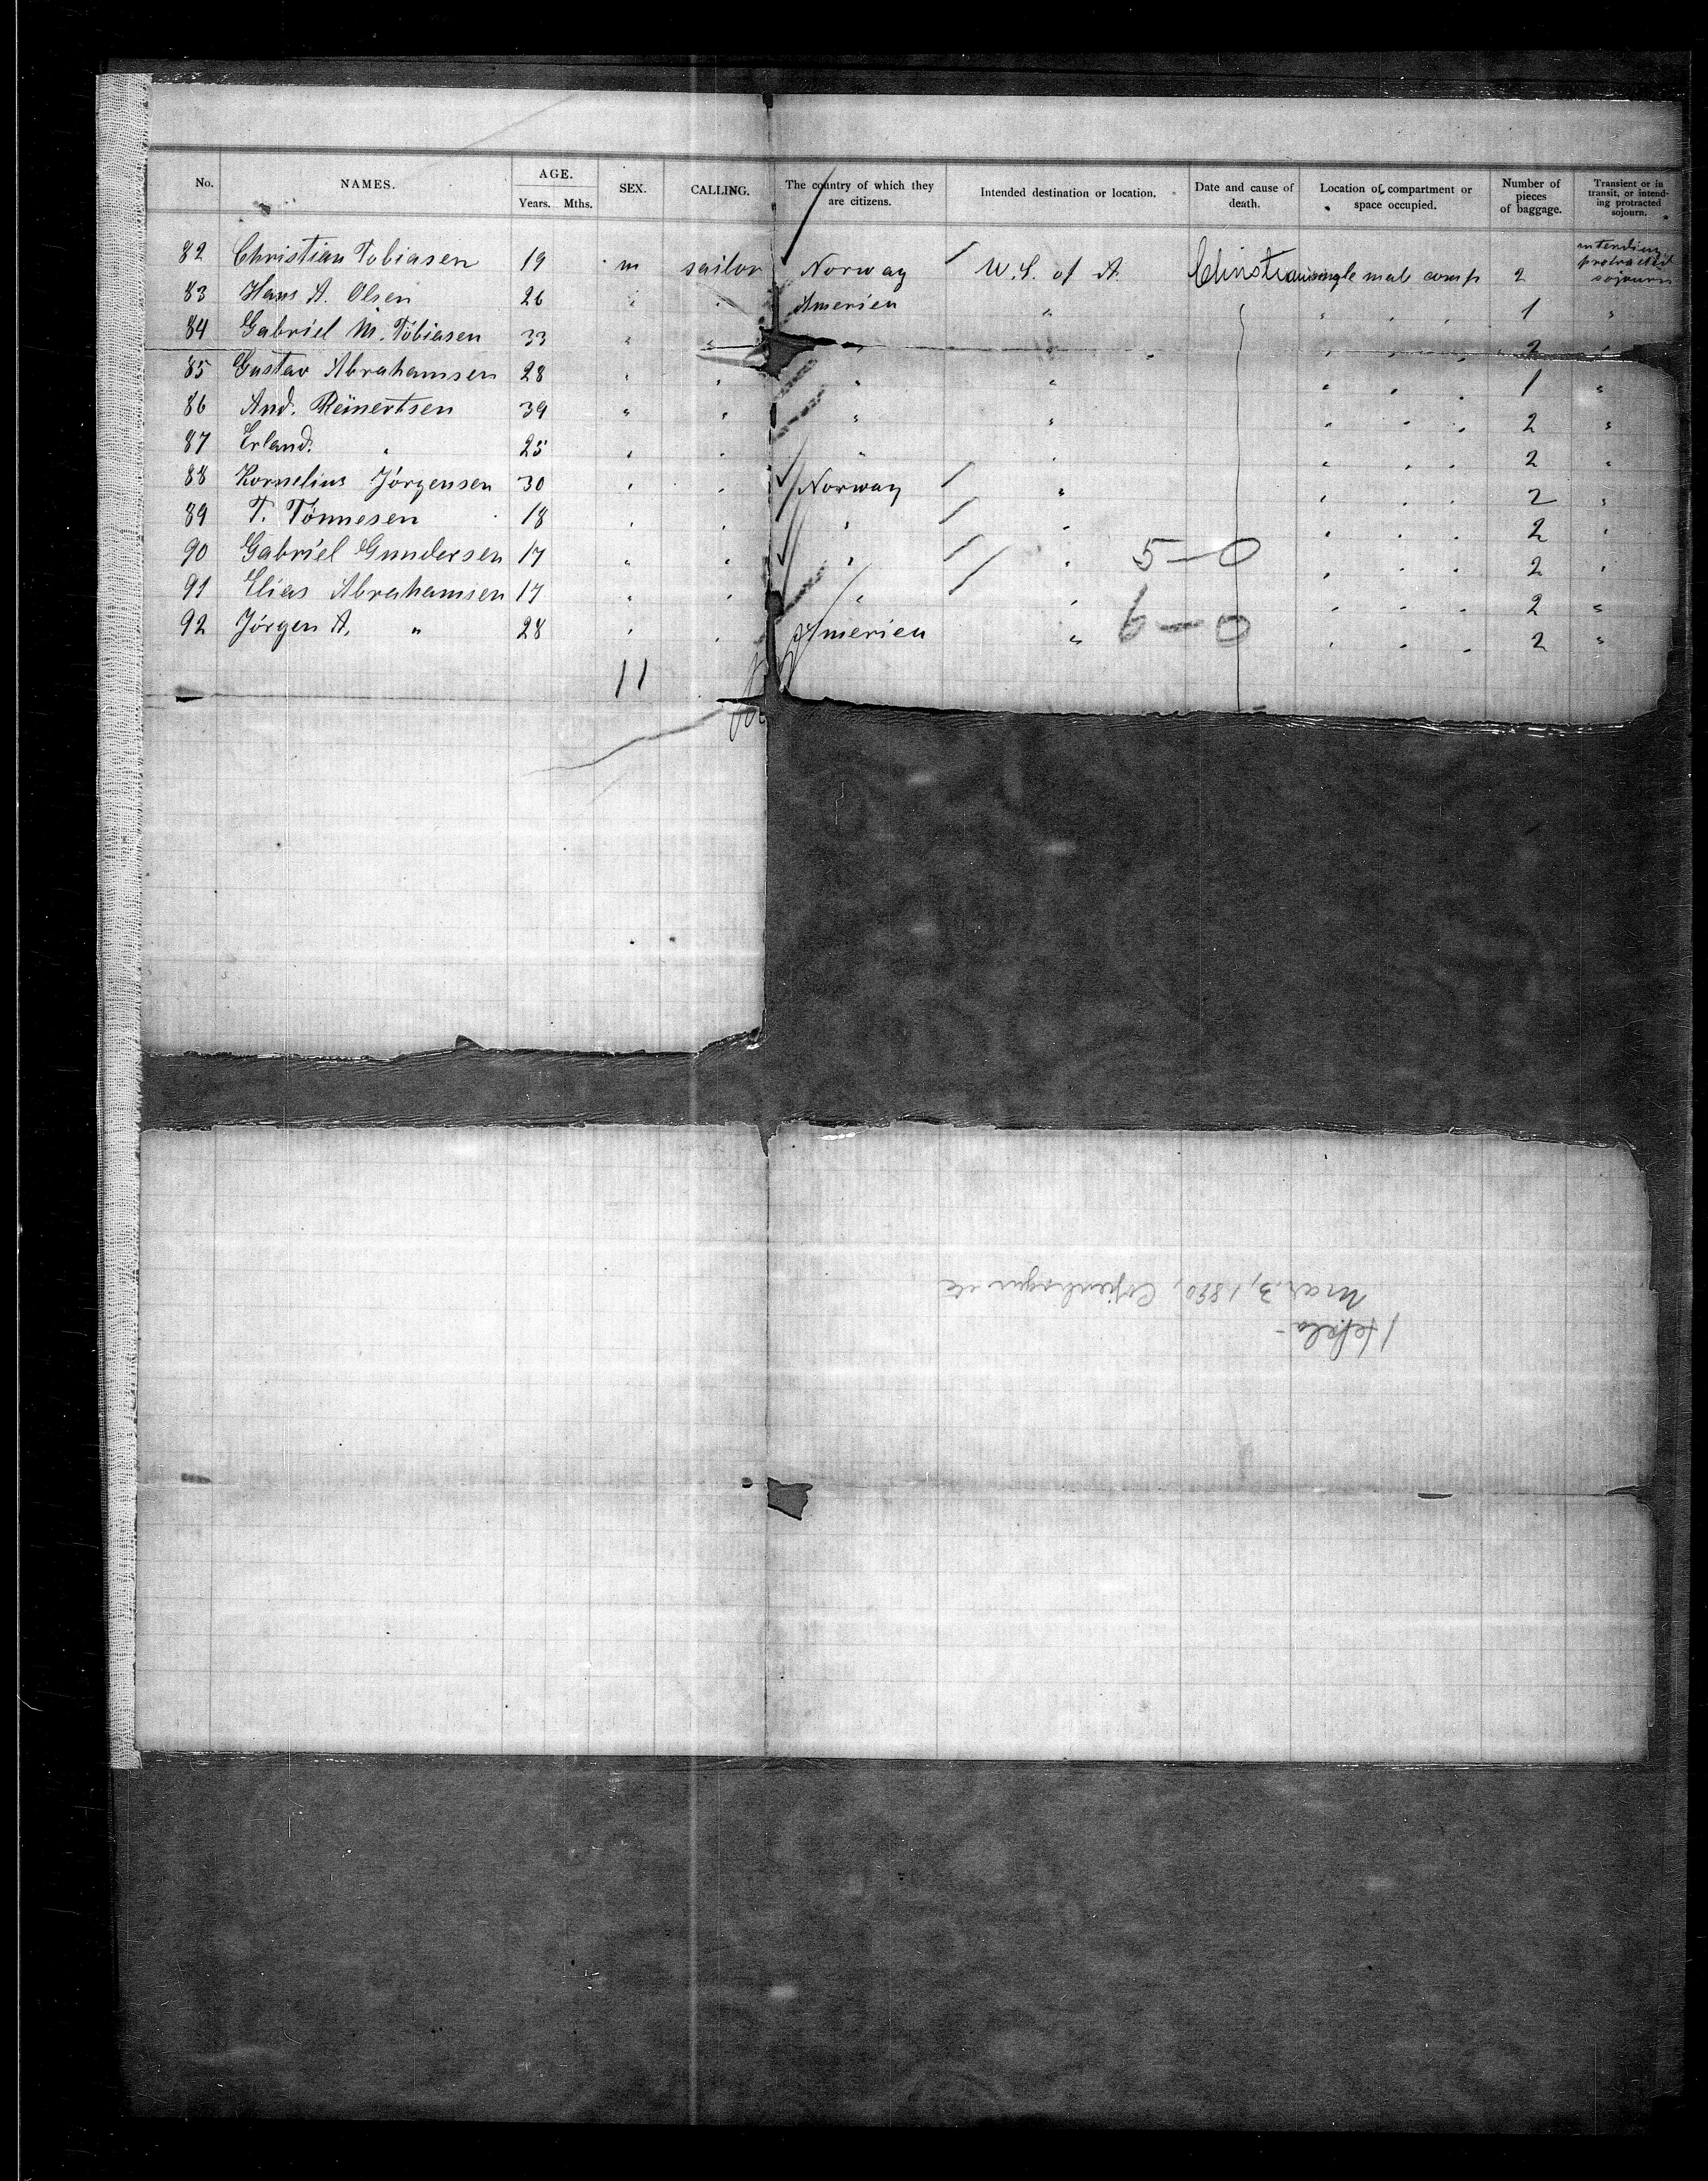 No. NAMES. AGE. Years. Mths. SEX. CALLING. The country of which they are citizens. Intended destination or location. Date and cause of death. Location of compartment or space occupied. Number of pieces of baggage. Transient or in transit, or intending protracted sojourn.
82 Christian Tobiasen 19 m sailor Norway U.S. of A. single male comp 2 intending protracted sojourn
83 Hans A. Olsen 26 " " America " " " " 1 "
84 Gabriel M. Tobiasen 33 " " " " " " 2 "
85 Gustav Abrahamsen 28 " " " " " " " 1 "
86 And. Reinertsen 39 " " " " " " " 2 "
87 Erland. " 25 " " " " " " " 2 "
88 Kornelius Jörgensen 30 " " Norway " " " " 2 "
89 T. Tönnesen 18 " " " " " " " 2 "
90 Gabriel Gundersen 17 " " " " 5—0 " " " 2 "
91 Elias Abrahamsen 17 " " " " " " " 2 "
92 Jörgen A. " 28 " " America " 6—0 " " " 2 "
11
Hekla
Mar. 3, 1890, Copenhagen etc